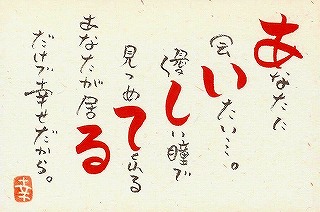 あなたに
会いたい…。
優しい瞳で
見つめてくれる
あなたが居る
だけで幸せだから。
幸